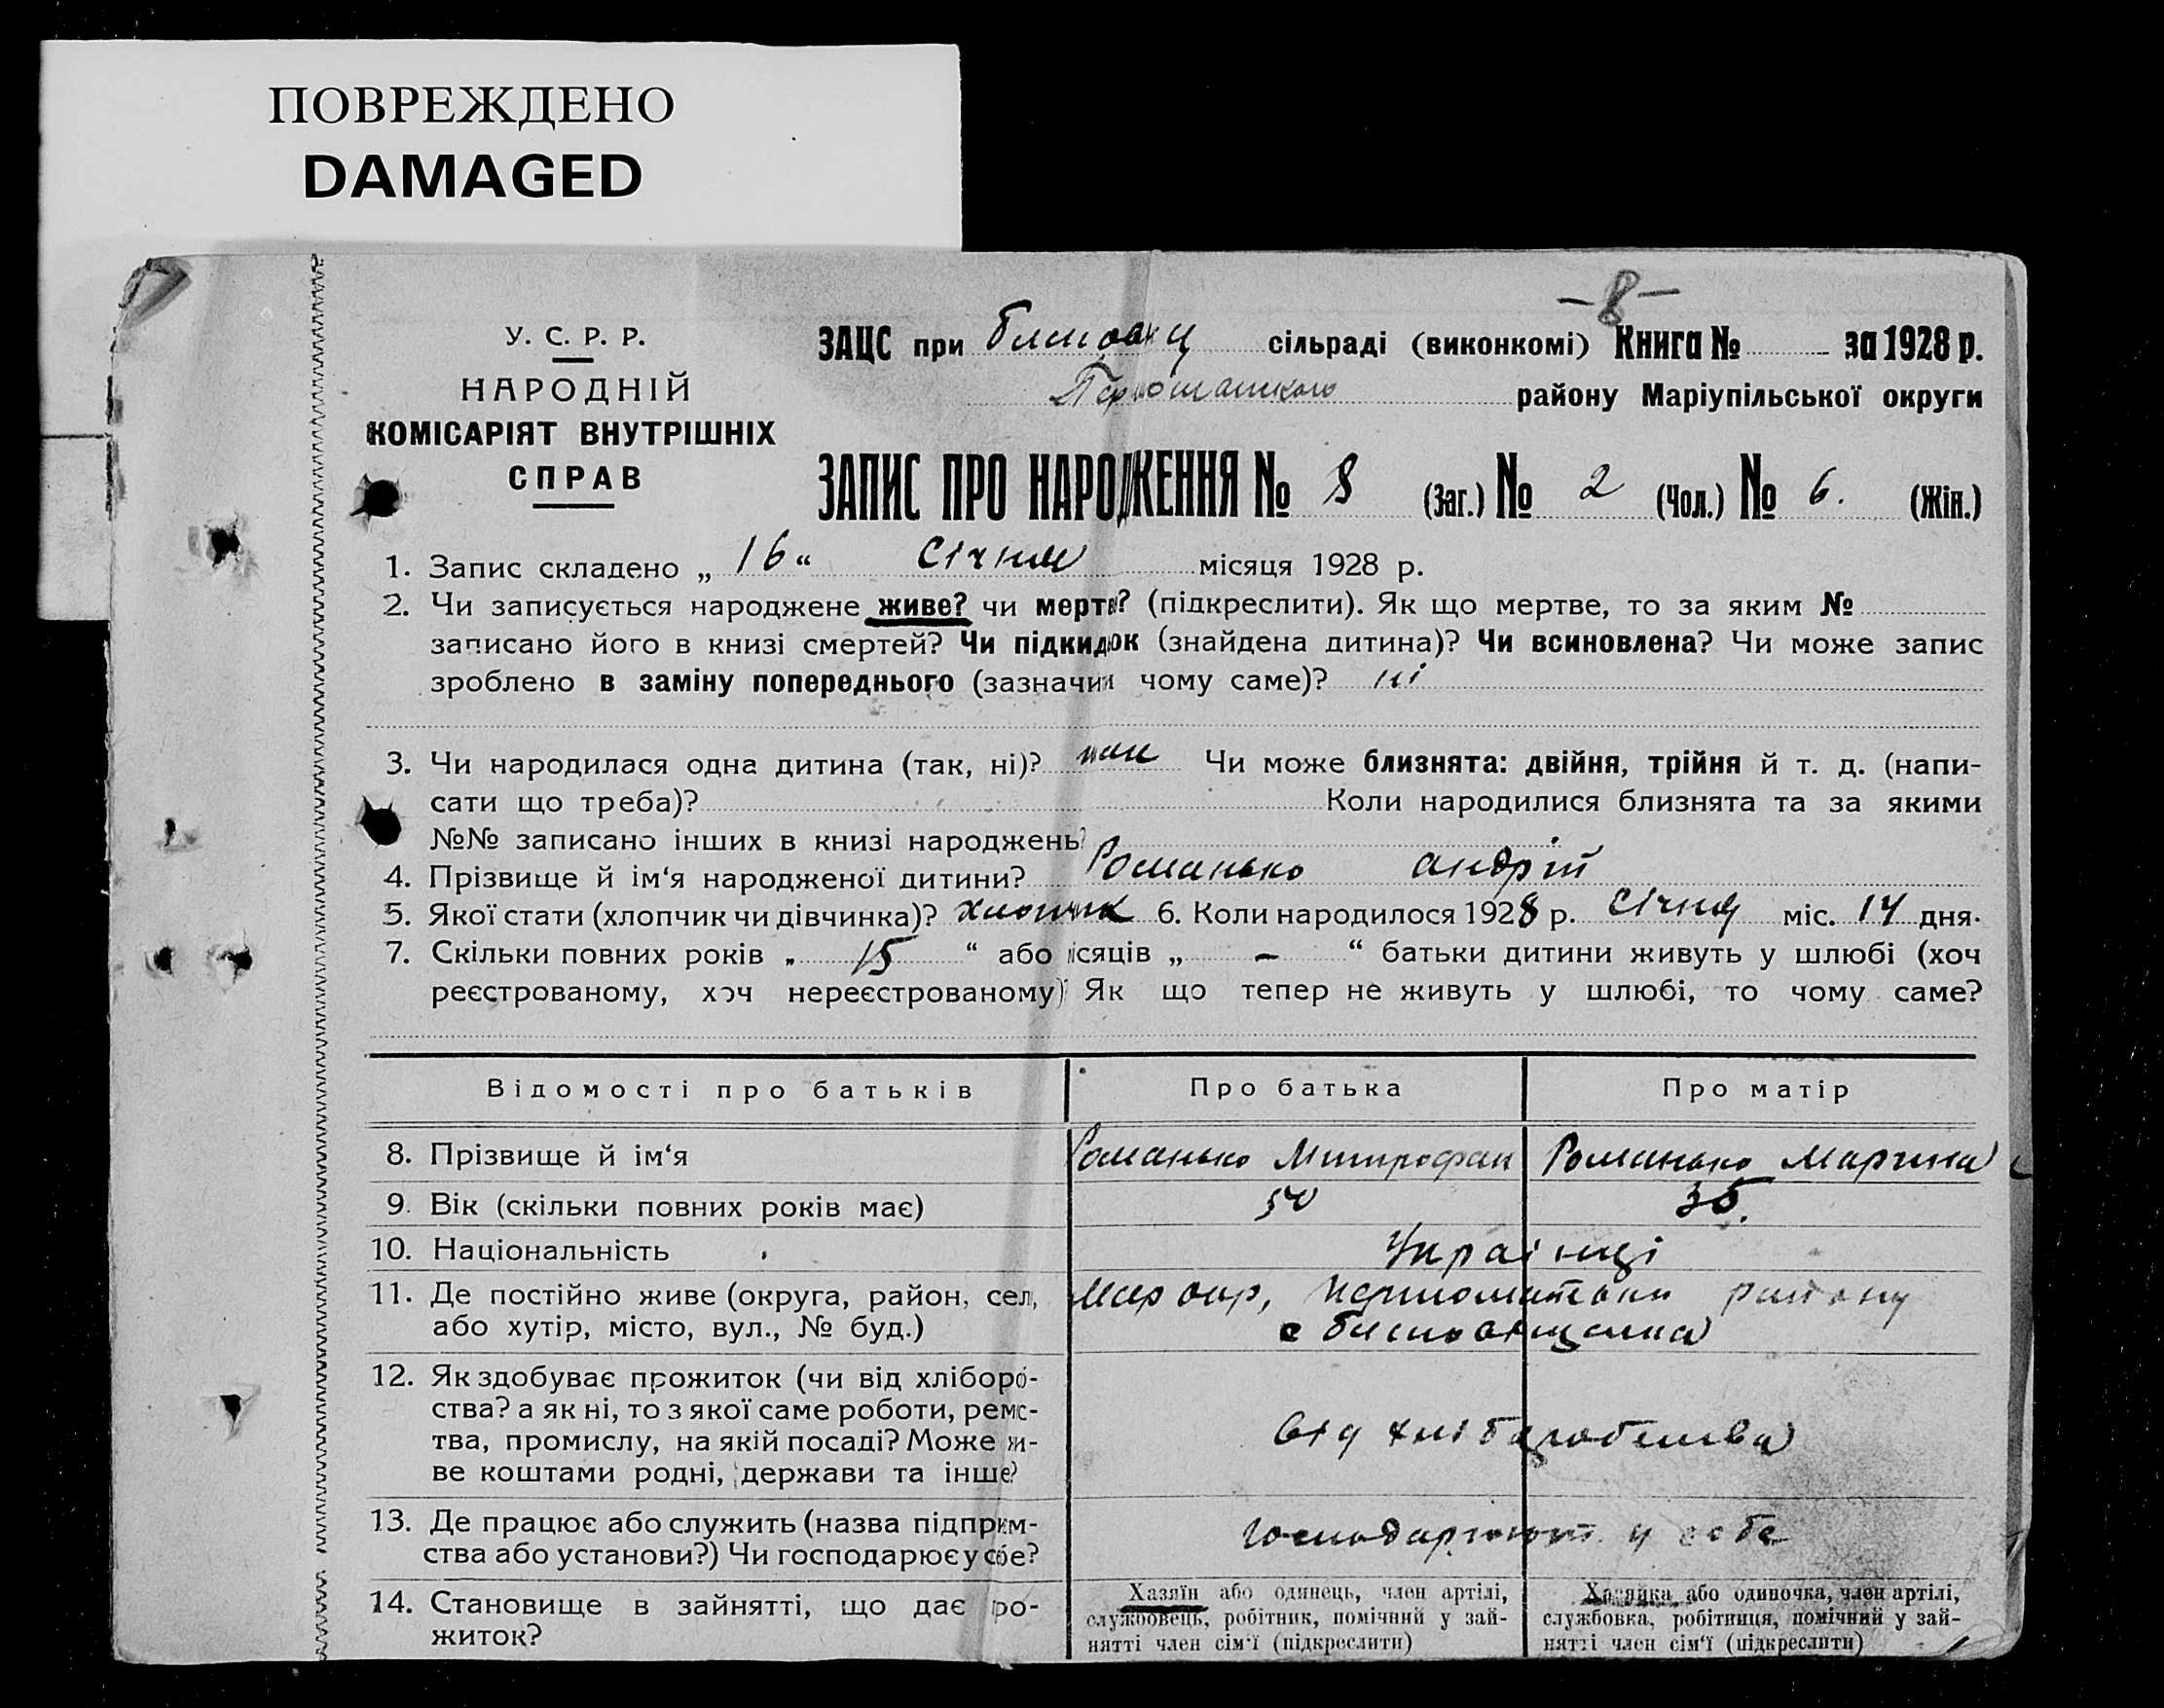 ПОВРЕЖДЕНО
DAMAGED
-8-
У. С. Р. Р.
НАРОДНІЙ
КОМІСАРІЯТ ВНУТРІШНІХ
СПРАВ
ЗАЦС при сільраді (виконкомі) Книга № за 1928 р.
району Маріупільської округи
ЗАПИС ПРО НАРОДЖЕННЯ № 8 (Заг.) № 2 (Чол.) № 6. (Жін.)
1. Запис складено „ 16 “ Січня місяця 1928 р.
2. Чи записується народжене живе? чи мертве? (підкреслити). Як що мертве, то за яким №
записано його в книзі смертей? Чи підкидьок (знайдена дитина)? Чи всиновлена? Чи може запис
зроблено в заміну попереднього (зазначии чому саме)? ні
3. Чи народилася одна дитина (так, ні)? так Чи може близнята: двійня, трійня й т. д. (напи-
сати що треба)? Коли народилися близнята та за якими
№№ записано інших в книзі народжень?
4. Прізвище й ім‘я народженої дитини? Романько Андрій
5. Якої стати (хлопчик чи дівчинка)? хлопчик 6. Коли народилося 1928 р. Січня міс. 14 дня.
7. Скільки повних років „ 15 “ або місяців „ – “ батьки дитини живуть у шлюбі (хоч
реєстрованому, хоч нереєстрованому)? Як що тепер не живуть у шлюбі, то чому саме?
Відомості про батьків Про батька Про матір
8. Прізвище й ім‘я Романько Митрофан Романько Марина
9. Вік (скільки повних років має) 35.
10. Національність Українці
11. Де постійно живе (округа, район, село, Мар окр, району
або хутір, місто, вул., № буд.) с
12. Як здобуває прожиток (чи від хліборо-
ства? а як ні, то з якої саме роботи, реміс-
тва, промислу, на якій посаді? Може жи- від хліборобства
ве коштами родні, держави та інше?
13. Де працює або служить (назва підприєм- господарюют у себе
ства або установи?) Чи господарює у себе?
14. Становище в зайнятті, що дає про-
житок?
Хазяїн або одинець, член артілі,
службовець, робітник, помічний у зай-
нятті член сім‘ї (підкреслити)
Хазяйка або одиночка, член артілі,
службовка, робітниця, помічний у зай-
нятті член сім‘ї (підкреслити)